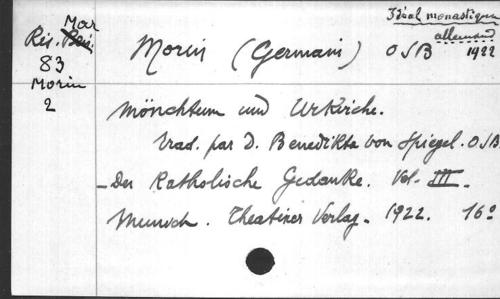 Mar
Rés. Bén.
83
Morin
2
Idéal monastique
allemand
Morin (Germain) OSB 1922
Mönchtum und Urkirche.
Trad. par D. Benedikta von Spiegel. OSB
- Der Katholische Gedanke. Vol. III.
Munich. Theatiner Verlag. 1922. 16°